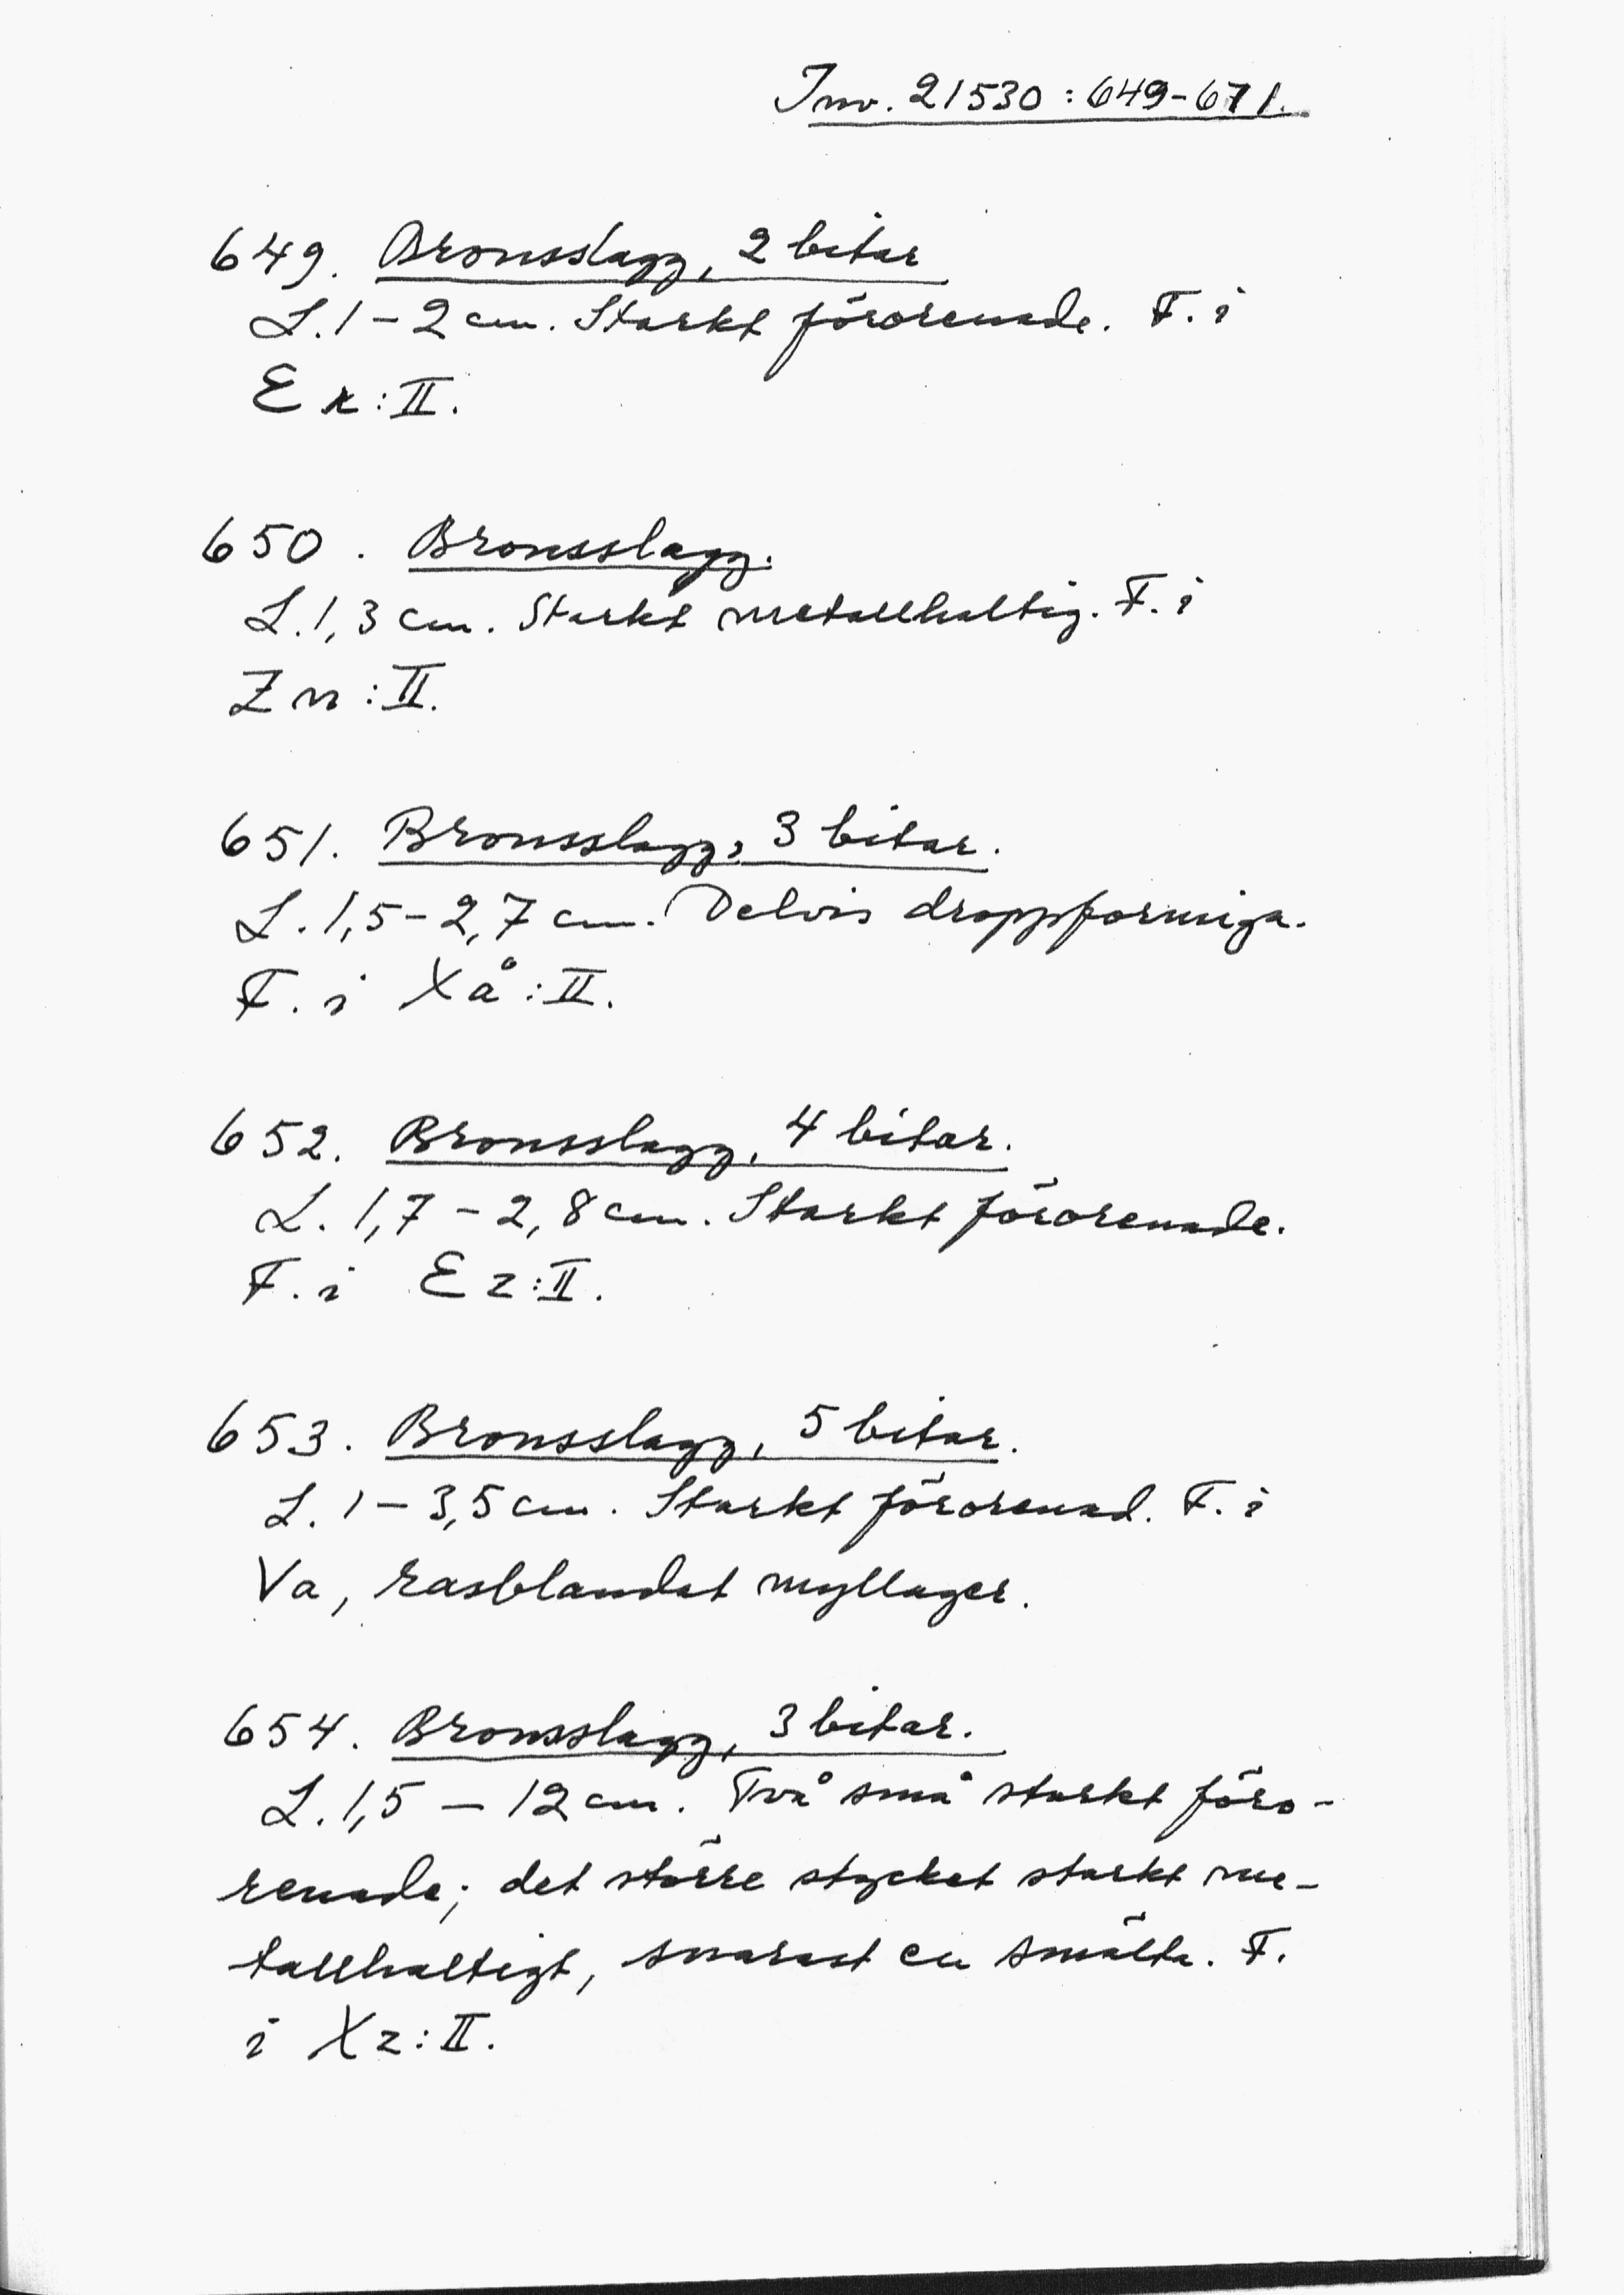 Inv. 21530:649-671.
649. Bronsslagg, 2 bitar
L. 1-2 cm. Starkt förorenade. F. i
Ex:II.
650. Bronsslagg.
L. 1,3 cm. Starkt metallhaltig. F. i
Zn:II.
651. Bronsslagg, 3 bitar.
L. 1,5-2,7 cm. Delvis droppformiga.
F. i Xå:II.
652. Bronsslagg, 4 bitar.
L. 1,7-2,8 cm. Starkt förorenade.
F. i Ez:II.
653. Bronsslagg, 5 bitar.
L. 1-3,5 cm. Starkt förorenad. F. i
Va, rasblandat myllager.
654. Bronsslagg, 3 bitar.
L. 1,5-12 cm. Två små starkt föro-
renade; det större stycket starkt me-
tallhaltigt, snarast en smälta. F.
i Xz:II.